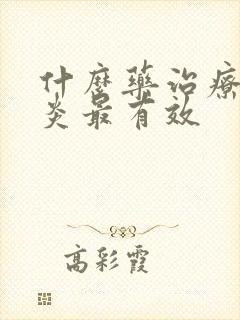 什麼藥治療
炎最有效
高彩霞